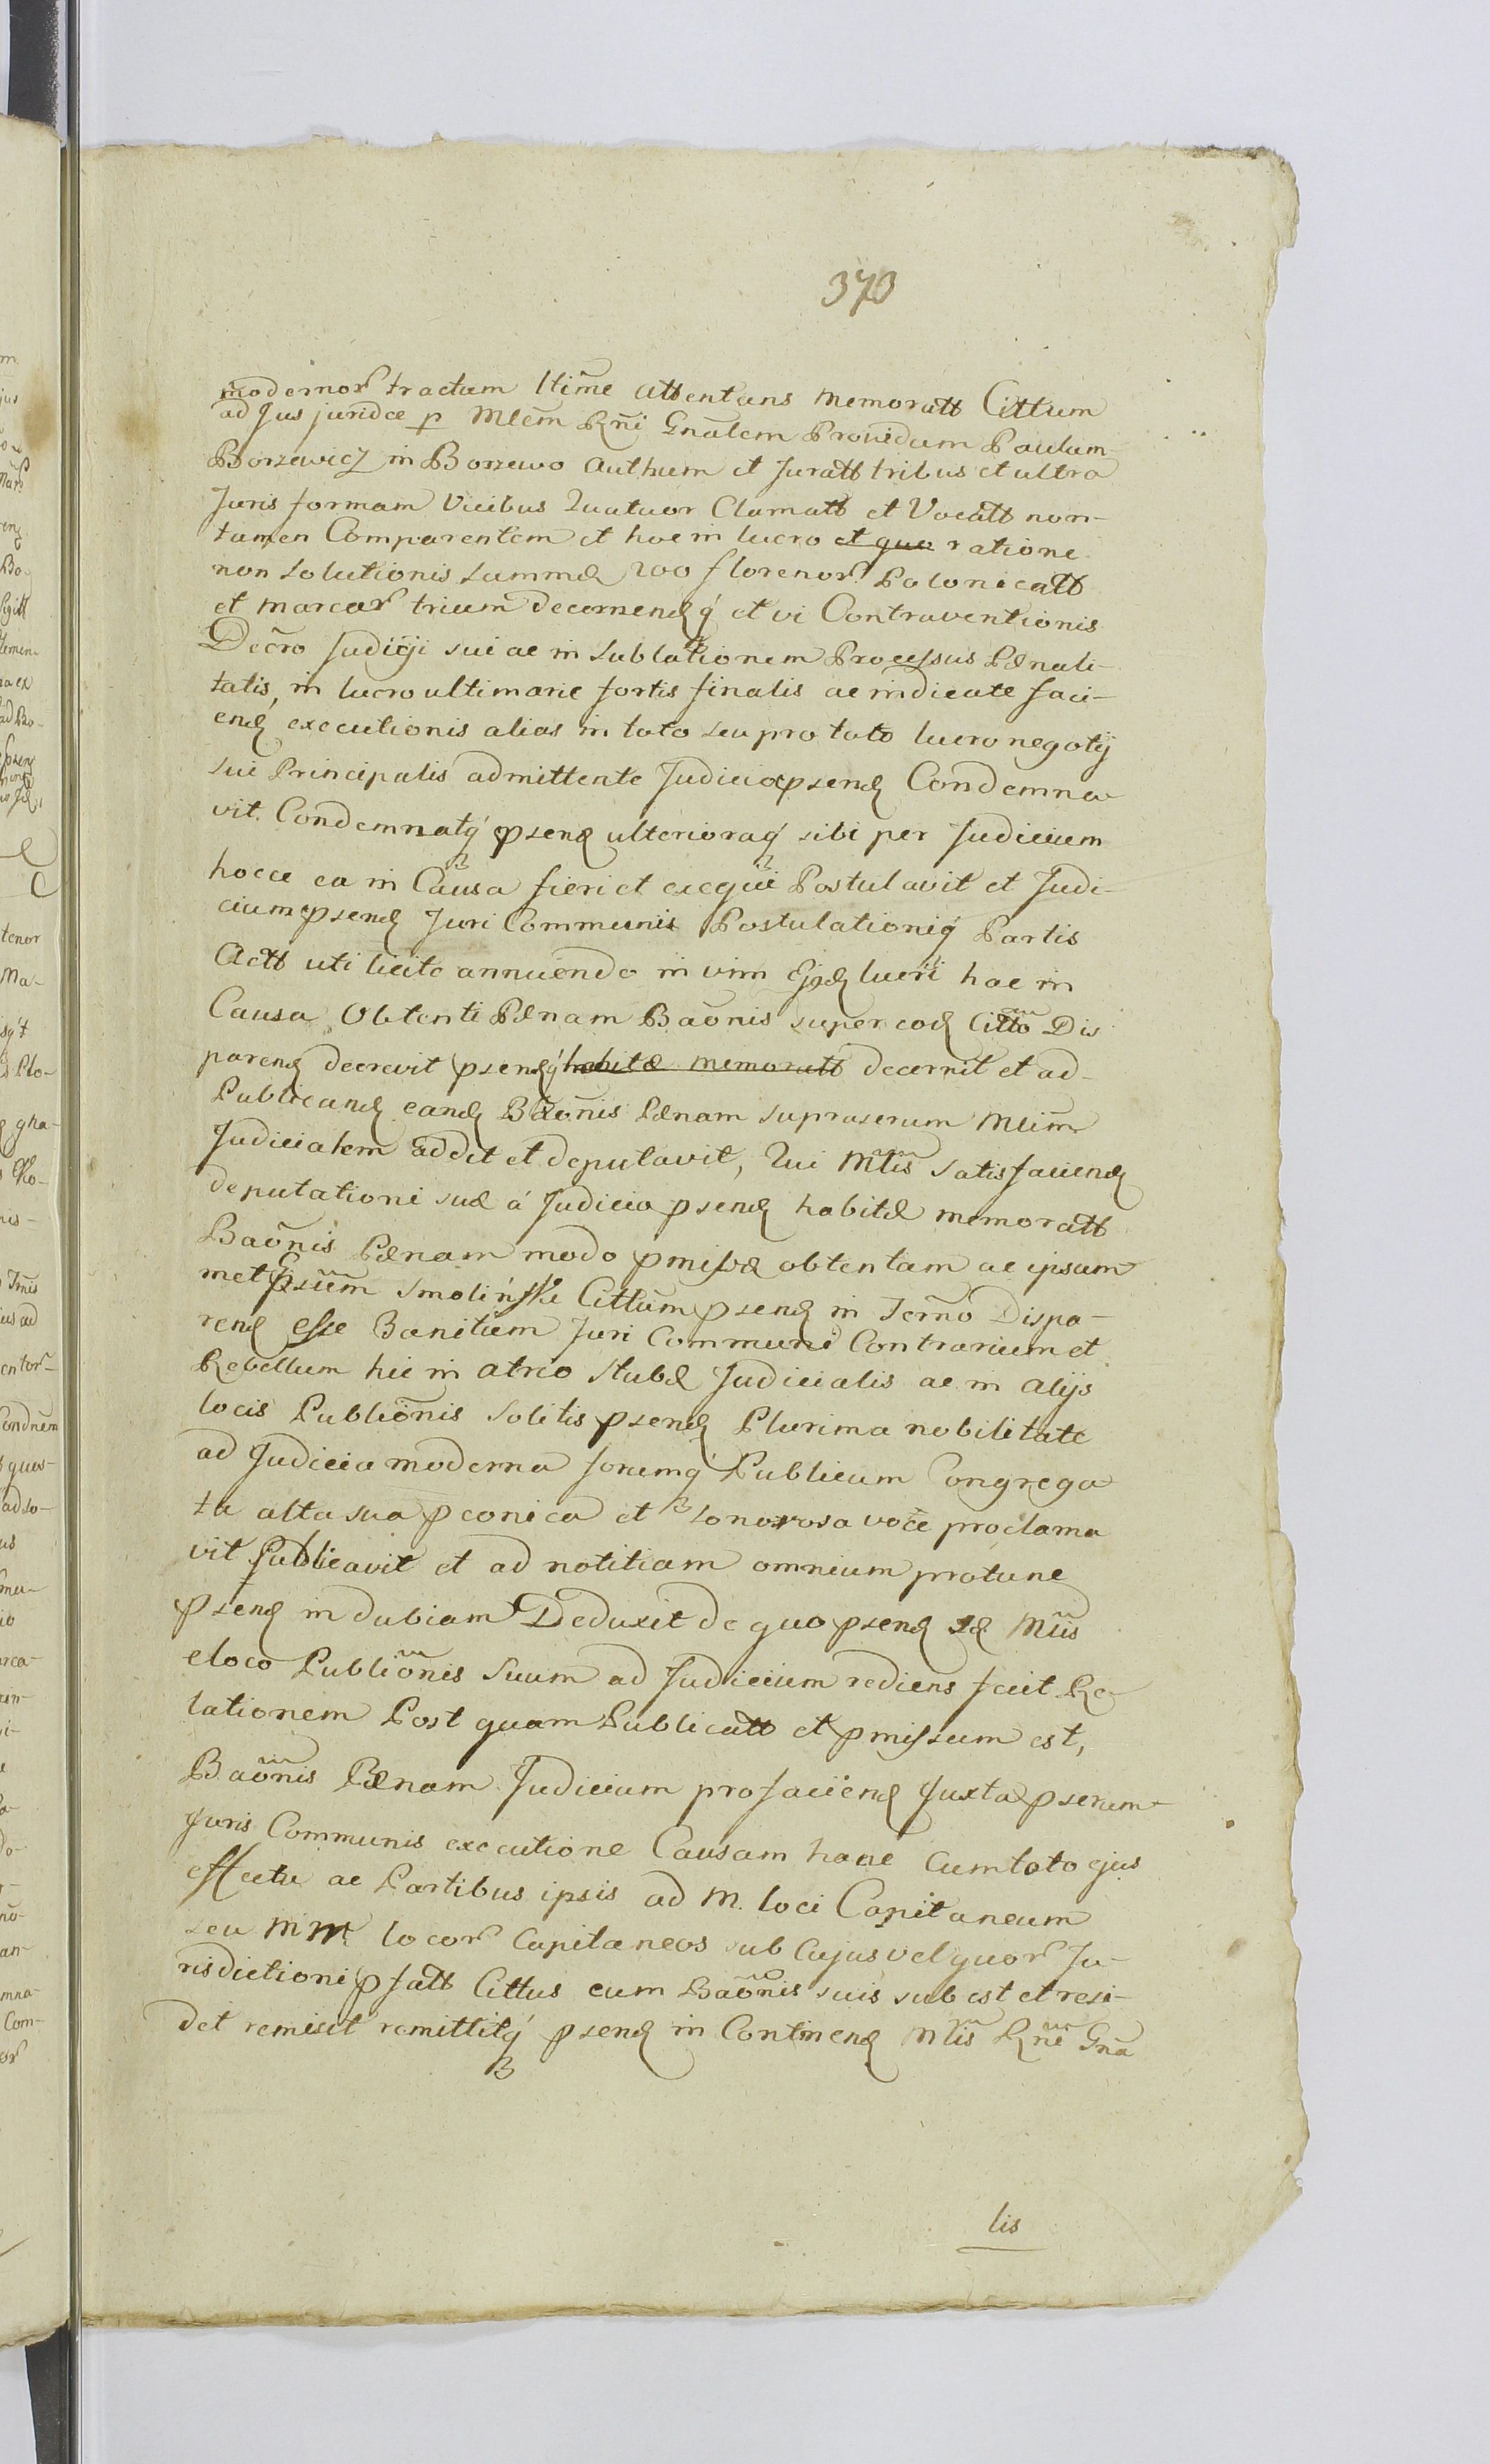 370
modernor tractum ltime attentans memoratt Cittum
ad Jus juridce p Mlem Rni Gnalem Providum Paulum
Borzewicz in Borzewo authum et Juratt tribus et ultra
Juris formam Vicibus Quatuor Clamatt et Vocatt non-
tamen Comparentem et hoc in lucro et quo ratione
non solutionis summæ 200 florenor Polonicatt
et marcar trium decernend q et vi Contraventionis
Decro Judicij sui ac in sublationem Processus Pænali-
tatis, in lucro ultimarie sortis finalis ac indicate faci-
end executionis alias in toto seu pro toto lucro negotij
sui Principalis admittente Judicio psend Condemna
vit. Condemnatq psend ulterioraq sibi per Judicium
hocce ea in Causa fieri et exequi Postulavit et Judi-
cium psend Juri Communis Postulationiq Partis
Actt uti licite annuendo in vim Ejsd lucri hac in
Causa Obtenti Pænam Baonis super eod Citto Dis
parend decrevit psendq habitæ memoratt decernit et ad-
Publicand eand Baonis Pænam supraserum Mlim
Judicialem addit et deputavit, Qui Mtis satisfaciend
deputationi suæ á Judicio psend habitæ memoratt
Baonis Pænam modo pmissæ obtentam ac ipsum
met Gsum Smolinski Cittum psend in Terno Dispa-
rend esse Banitum Juri Communi Contrarium et
Rebellum hic in atrio stubæ Judicialis ac in alijs
locis Publionis solitis psend Plurima nobilitate
ad Judicia moderna forumq Publicum Congrega
ta alta sua pconica et sonorosa voce proclama
vit Publicavit et ad notitiam omnium protunc
psend indubiam Deduxit de quo psend Id Mtis
e loco Publionis Suum ad Judicium rediens fecit Re-
lationem Post quam Publicatt et pmissum est,
Baonis Pænam Judicium pro faciend Juxta pserum
Juris Communis executione Causam hanc Cum toto ejus
effectu ac Partibus ipsis ad M. loci Capitaneum
seu MM locor Capitaneos sub Cujus vel quor Ju-
risdictioni psatt Cittus cum Baonis suis sub est et resi-
det remisit remittitq psend in Continend Mtis Rni Gna
lis